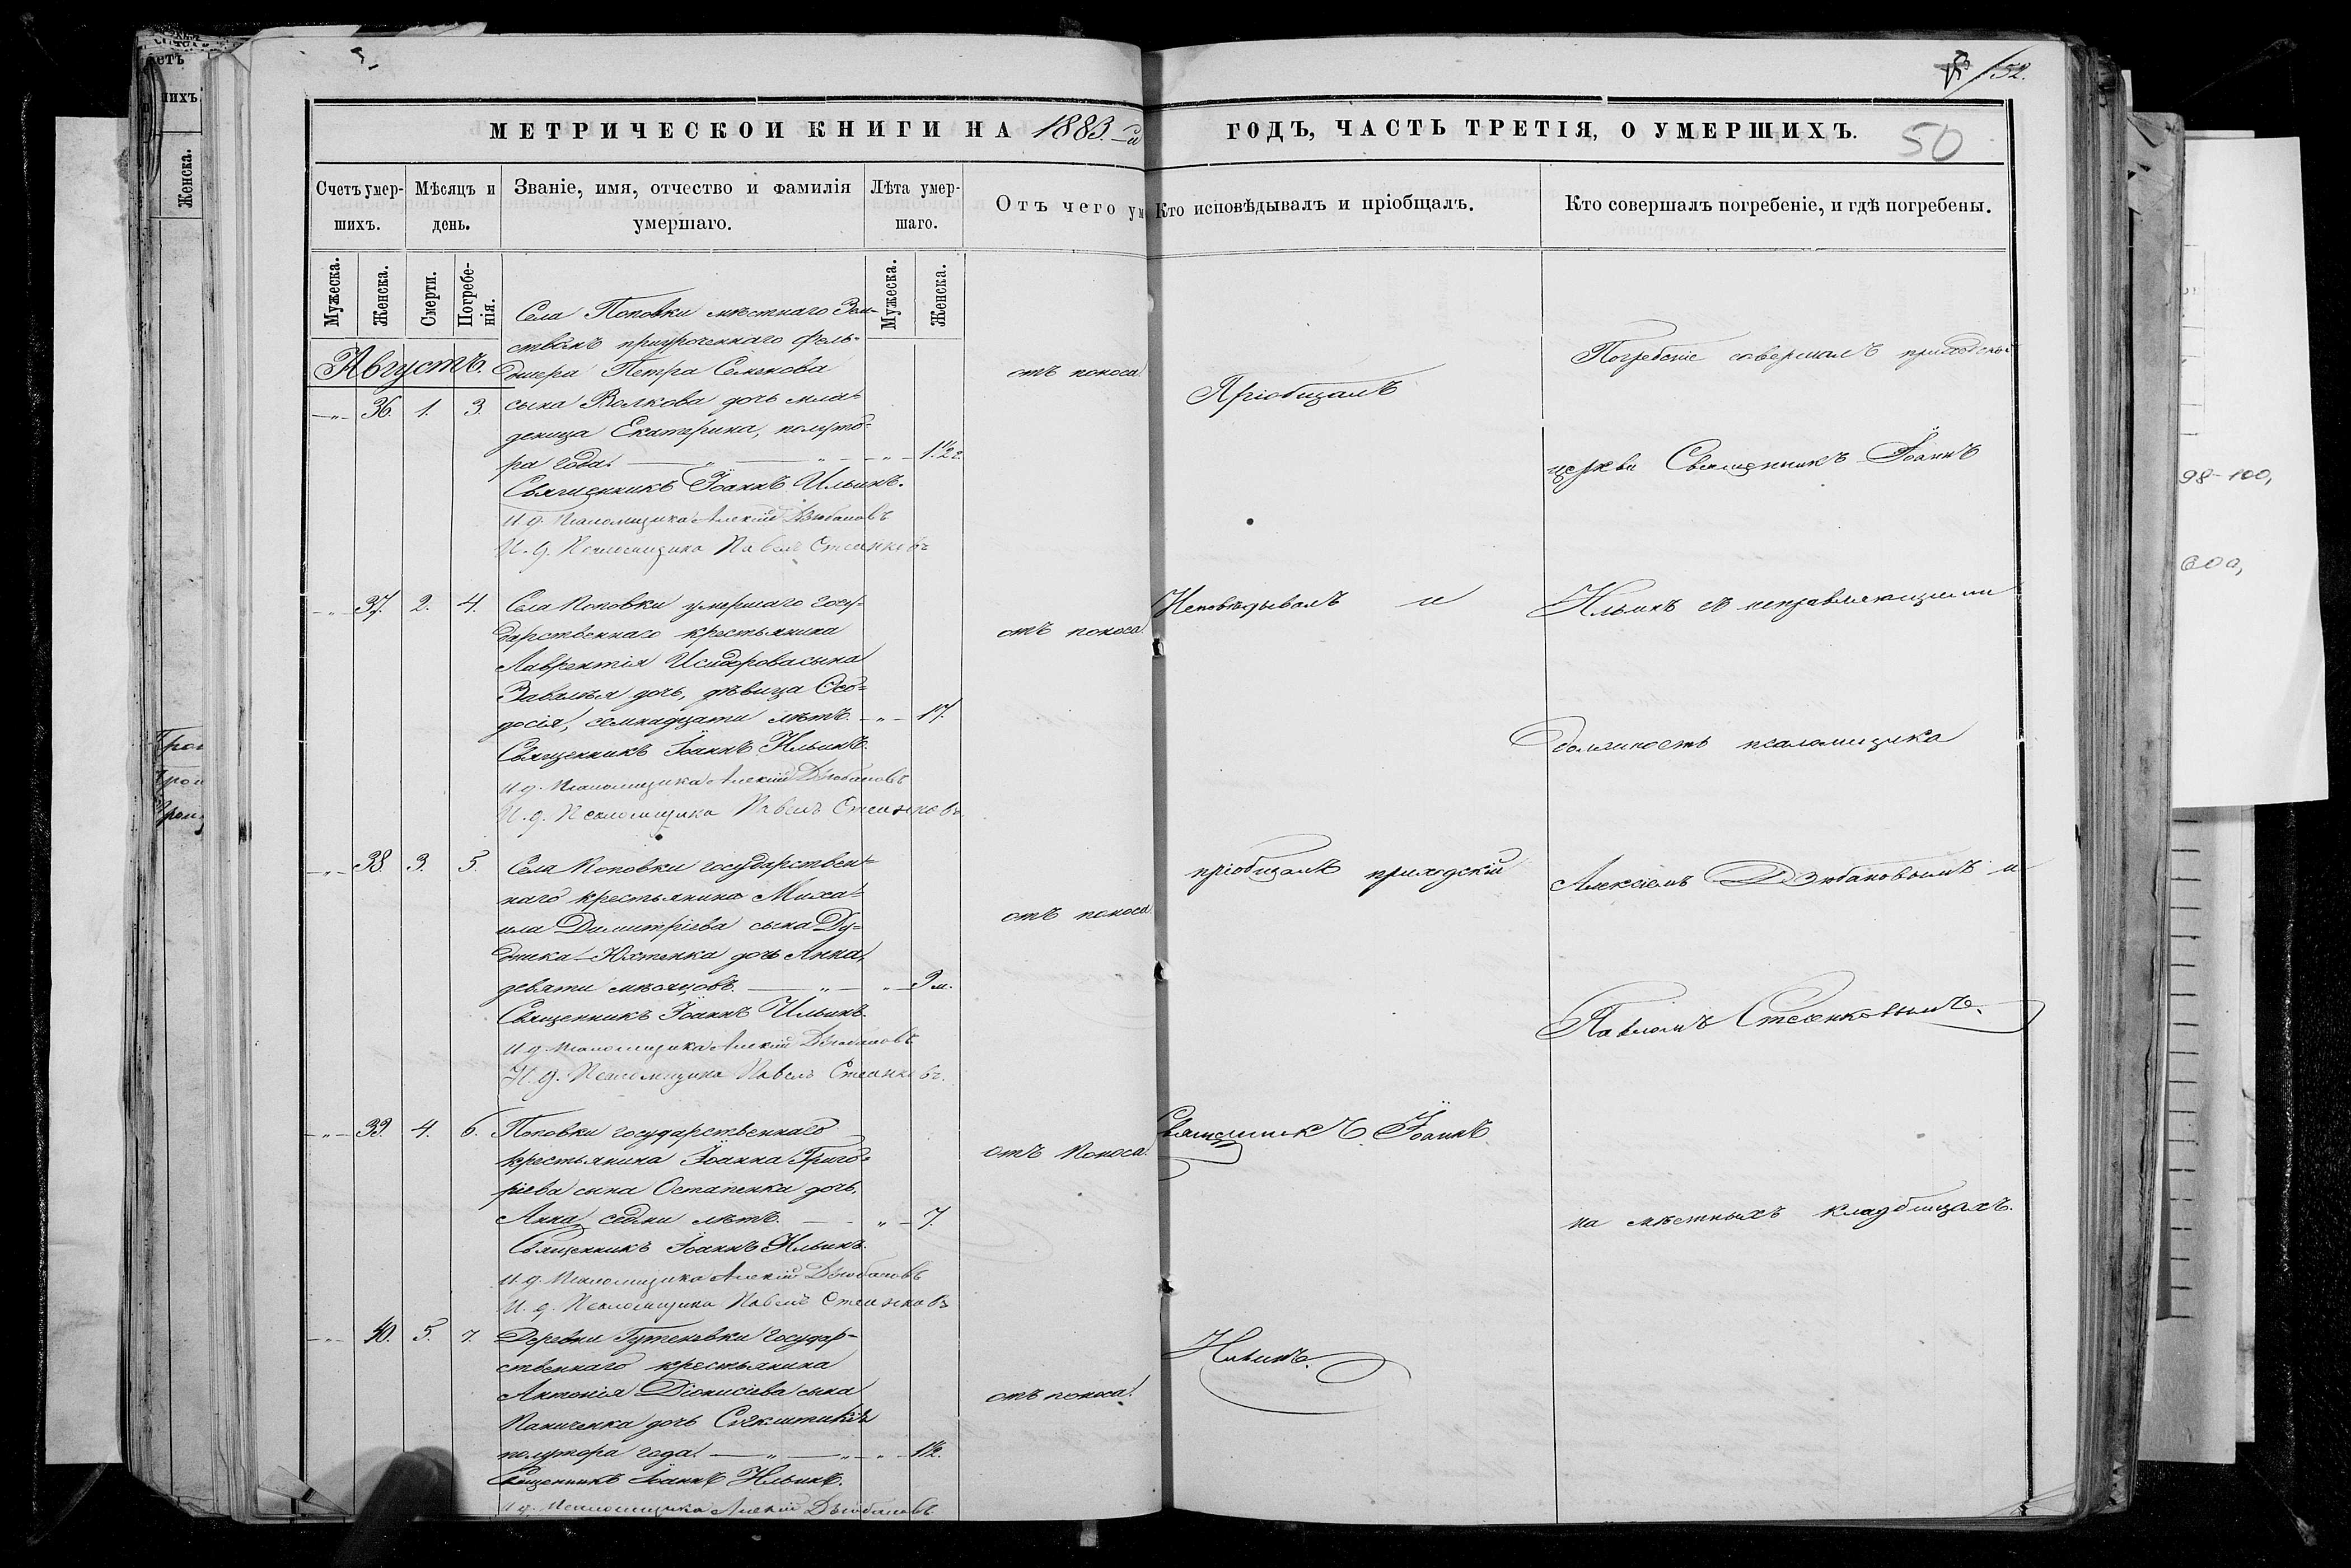 152.
МЕТРИЧЕСКОЙ КНИГИ НА 1883-й ГОДЪ, ЧАСТЬ ТРЕТІЯ, О УМЕРШИХЪ.
50
Счетъ умер-
шихъ.
Мѣсяцъ и
день.
Званіе, имя, отчество и фамилія
умершаго.
Лѣта умер-
шаго.
Отъ чего ум
Кто исповѣдывалъ и пріобщалъ.
Кто совершалъ погребеніе, и гдѣ погребены.
Мужеска.
Женска.
Смерти.
Погребе-
нія.
Мужеска.
Женска.
Августъ.
Села Поповки мѣстнаго Зем-
ствомъ приуроченнаго фель-
дшера Петра Семенова
-"- 36. 1. 3. сына Волкова дочь мла-
деница Екатерина, полуто-
ра года. -"- 1½ г.
отъ поноса.
Священникъ Іоаннъ Ильинъ.
И. д. Псаломщика Алексій Дзюбановъ
И. д. Псаломщика Павелъ Стеенковъ
-"- 37. 2. 4. Села Поповки умершаго госу-
дарственнаго крестьянина
Лаврентія Исидорова сына
Завалья дочь, дѣвица Ѳео-
досія, семнадцати лѣтъ. -"- 17.
отъ поноса.
Священникъ Іоаннъ Ильинъ.
И. д. Псаломщика Алексій Дзюбановъ
И. д. Псаломщика Павелъ Стеенковъ
-"- 38. 3. 5. Села Поповки государствен-
наго крестьянина Миха-
ила Димитріева сына Ду-
дника-Юхтенка дочь Анна,
девяти мѣсяцовъ. -"- 9 м.
отъ поноса.
Священникъ Іоаннъ Ильинъ.
И. д. Псаломщика Алексій Дзюбановъ
И. д. Псаломщика Павелъ Стеенковъ.
-"- 39. 4. 6. Поповки государственнаго
крестьянина Іоанна Григо-
ріева сына Остапенка дочь,
Анна, седми лѣтъ. -"- 7.
отъ поноса.
Священникъ Іоаннъ Ильинъ.
И. д. Псаломщика Алексій Дзюбановъ
И. д. Псаломщика Павелъ Стеенковъ
-"- 40. 5. 7. Деревни Гутеновки государ-
ственнаго крестьянина
Антонія Діонисіева сына
Паниченка дочь
полутора года. -"- 1½.
отъ поноса.
Священникъ Іоаннъ Ильинъ.
И. д. Псаломщика Алексій Дзюбановъ
Пріобщалъ
Исповѣдывалъ и
пріобщалъ приходскій
Священникъ Іоаннъ
Ильинъ.
Погребеніе совершалъ приходской
церкви Священникъ Іоаннъ
Ильинъ съ исправляющими
должность псаломщика
Алексіемъ Дзюбановымъ и
Павломъ Стеенковымъ.
на мѣстныхъ кладбищахъ.
етъ
ихъ
Женска.
98-100,
600,